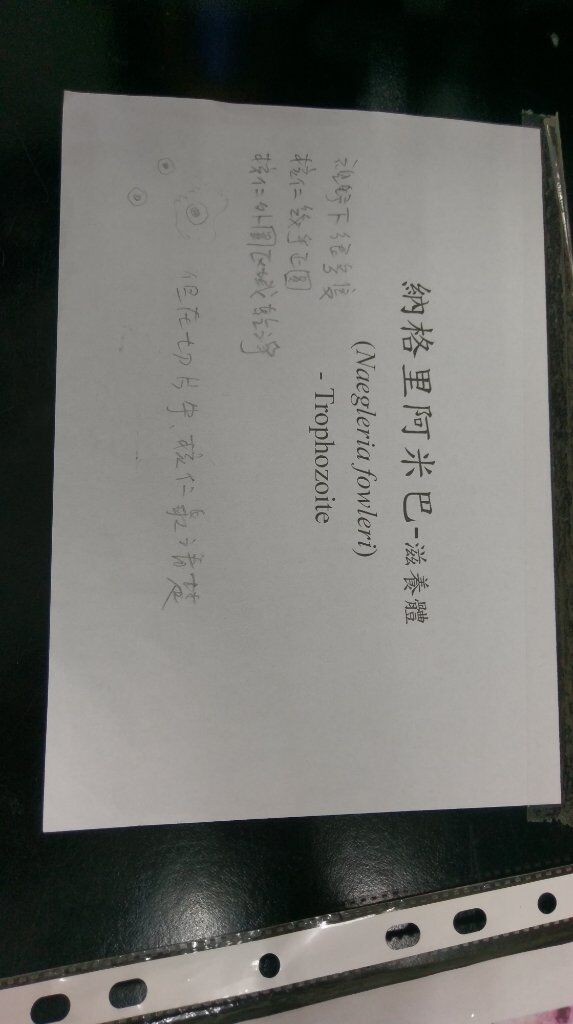 納格里阿米巴-滋養體
(Naegleria fowleri)
- Trophozoite
視野下很多隻
核仁幾乎正圓
核仁外圍區域乾淨
但在切片中、核仁最清楚